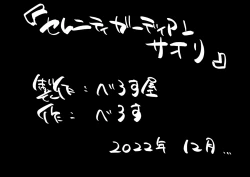 『セムニティガーディアン
サオリ』
製作：べろす屋
作：べろす
2022年 12月...